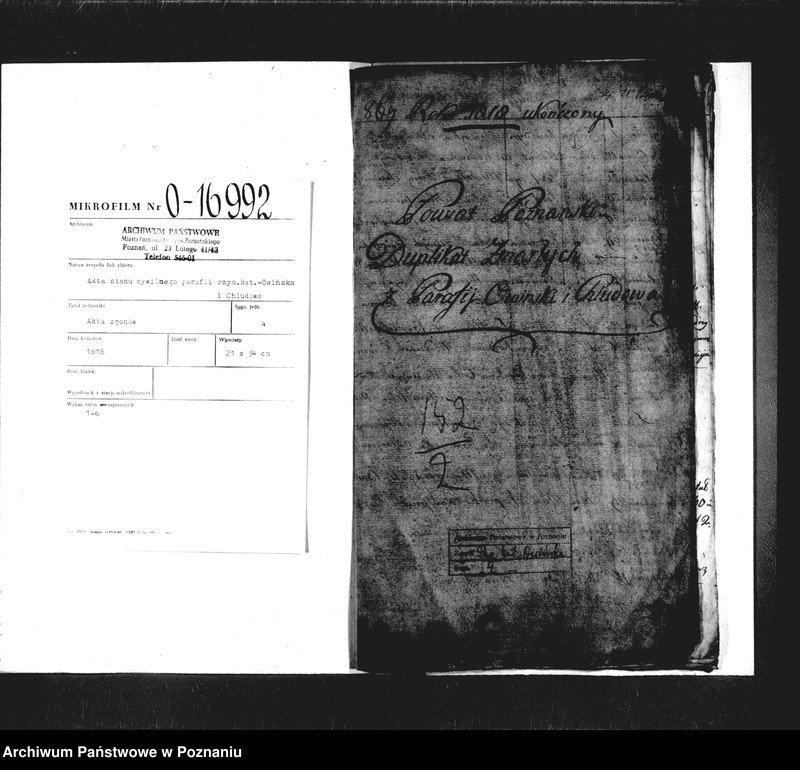 MIKROFILM Nr 0-16992
Archiwum
ARCHIWUM PAŃSTWOWE
Miasta Poznania i Woj. Poznańskiego
Poznań, ul. 23 Lutego 41/43
Telefon 546-01
Nazwa zespołu lub zbioru
Akta stanu cywilnego parafii rzym.kat.-Owińska
i Chludowo
Tytuł jednostki
Akta zgonów
Sygn. jedn.
4
Daty krańcowe
1818
Ilość stron
Wymiary
21 x 34 cm
Ilość klatek
Wypełnia k-k stacji mikrofilmowej
Wykaz stron
1-6
Rok 1818 ukończony
Powiat Poznanski
Duplikat Zmarłych
z Parafij Owinski i Chludowa
152
2
Archiwum Państwowe w Poznaniu
4
Archiwum Państwowe w Poznaniu